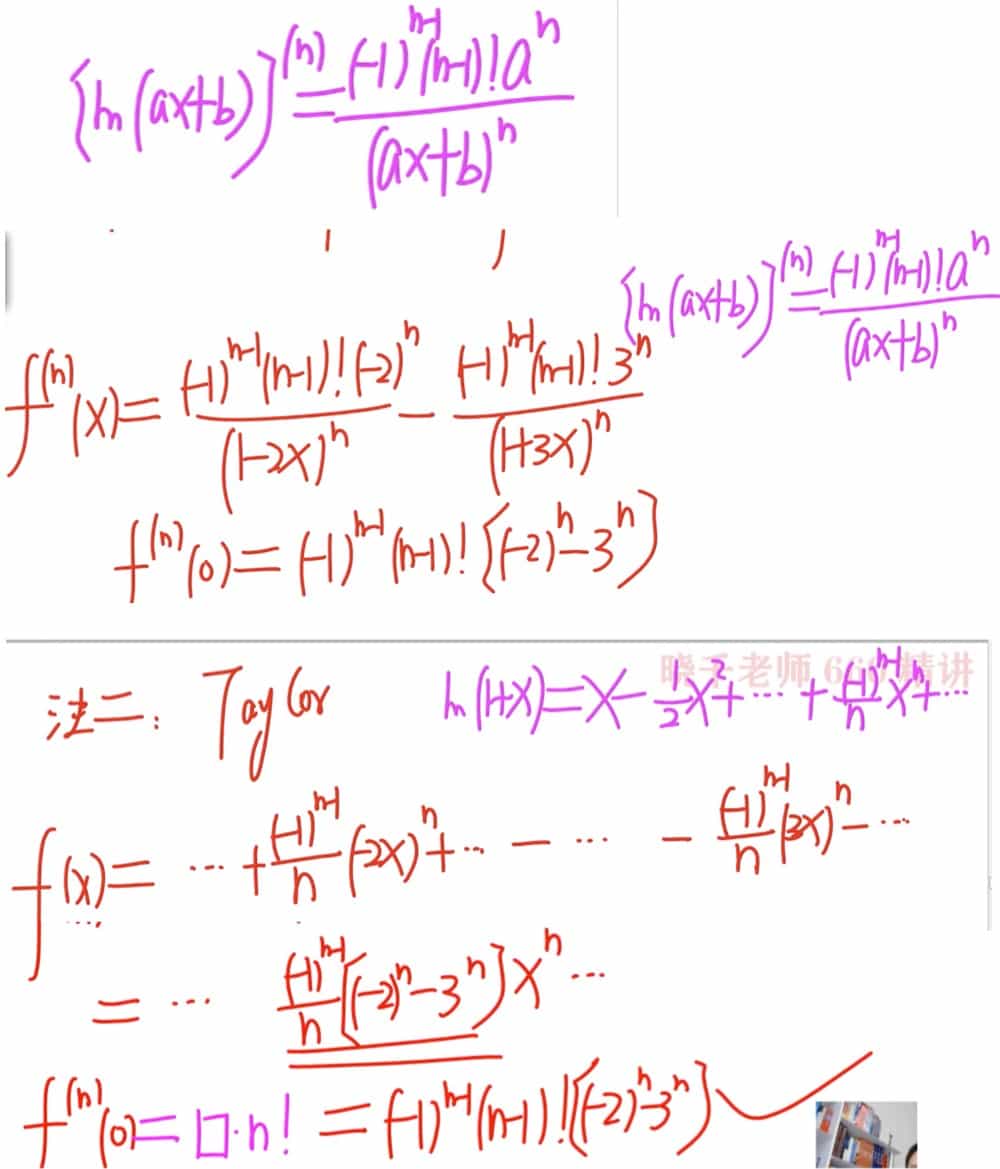 [ln(ax+b)]^(n) = (-1)^(n-1)(n-1)!a^n / (ax+b)^n
[ln(ax+b)]^(n) = (-1)^(n-1)(n-1)!a^n / (ax+b)^n
f^(n)(x) = (-1)^(n-1)(n-1)!(-2)^n / (1-2x)^n - (-1)^(n-1)(n-1)!3^n / (1+3x)^n
f^(n)(0) = (-1)^(n-1)(n-1)![(-2)^n-3^n]
晓千老师 660 精讲
注二: Taylor ln(1+x) = x - 1/2 x^2 + ··· + (-1)^(n-1)/n x^n + ···
f(x) = ··· + (-1)^(n-1)/n (-2x)^n + ··· - ··· - (-1)^(n-1)/n (3x)^n - ···
= ··· (-1)^(n-1)/n [(-2)^n-3^n]x^n ···
f^(n)(0) = □·n! = (-1)^(n-1)(n-1)![(-2)^n-3^n]